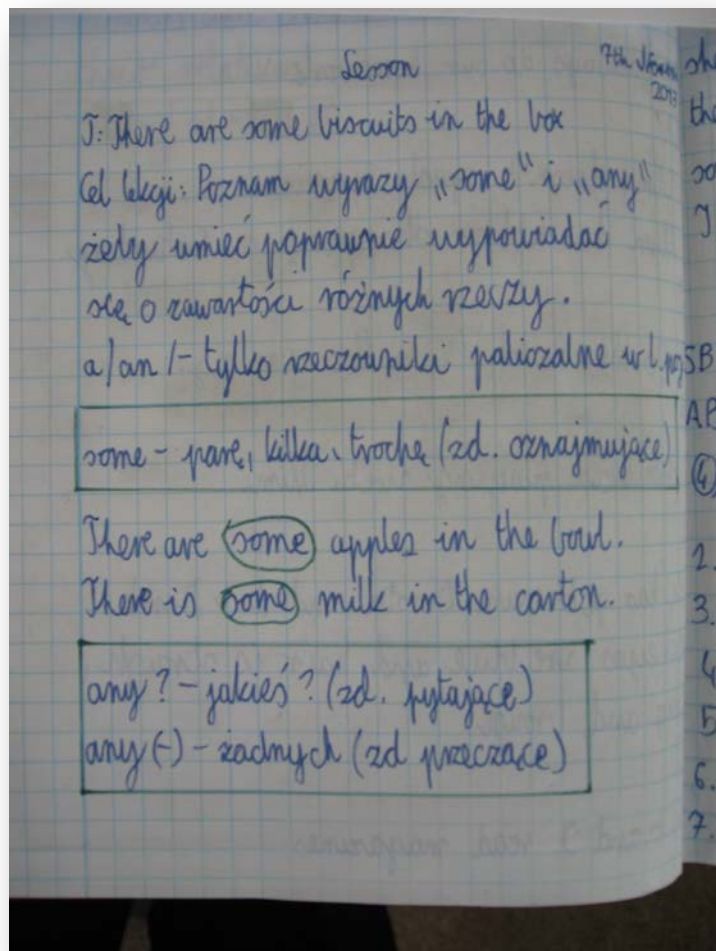 Lesson
7th
2013
T: There are some biscuits in the box
Cel lekcji: Poznam wyrazy „some" i „any"
żeby umieć poprawnie wypowiadać
się o zawartości różnych rzeczy.
a/an/- tylko rzeczowniki policzalne w l. poj
some - parę, kilka, trochę (zd. oznajmujące)
There are some apples in the bowl.
There is some milk in the carton.
any? - jakieś? (zd. pytające)
any (-) - żadnych (zd przeczące)
she
the
so
J
SB
AB
4
2.
3.
4
5
6.
7.